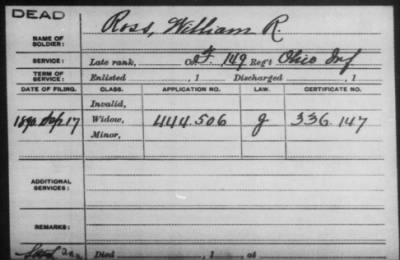 DEAD
NAME OF SOLDIER: Ross, William R.
SERVICE: Late rank, Co. F. 149 Reg't Ohio Inf
TERM OF SERVICE: Enlisted , 1 Discharged , 1
DATE OF FILING. CLASS. APPLICATION NO. LAW. CERTIFICATE NO.
Invalid,
1890 Sep. 17 Widow, 444.506 g 336 147
Minor,
ADDITIONAL SERVICES:
REMARKS:
Died , 1 , at